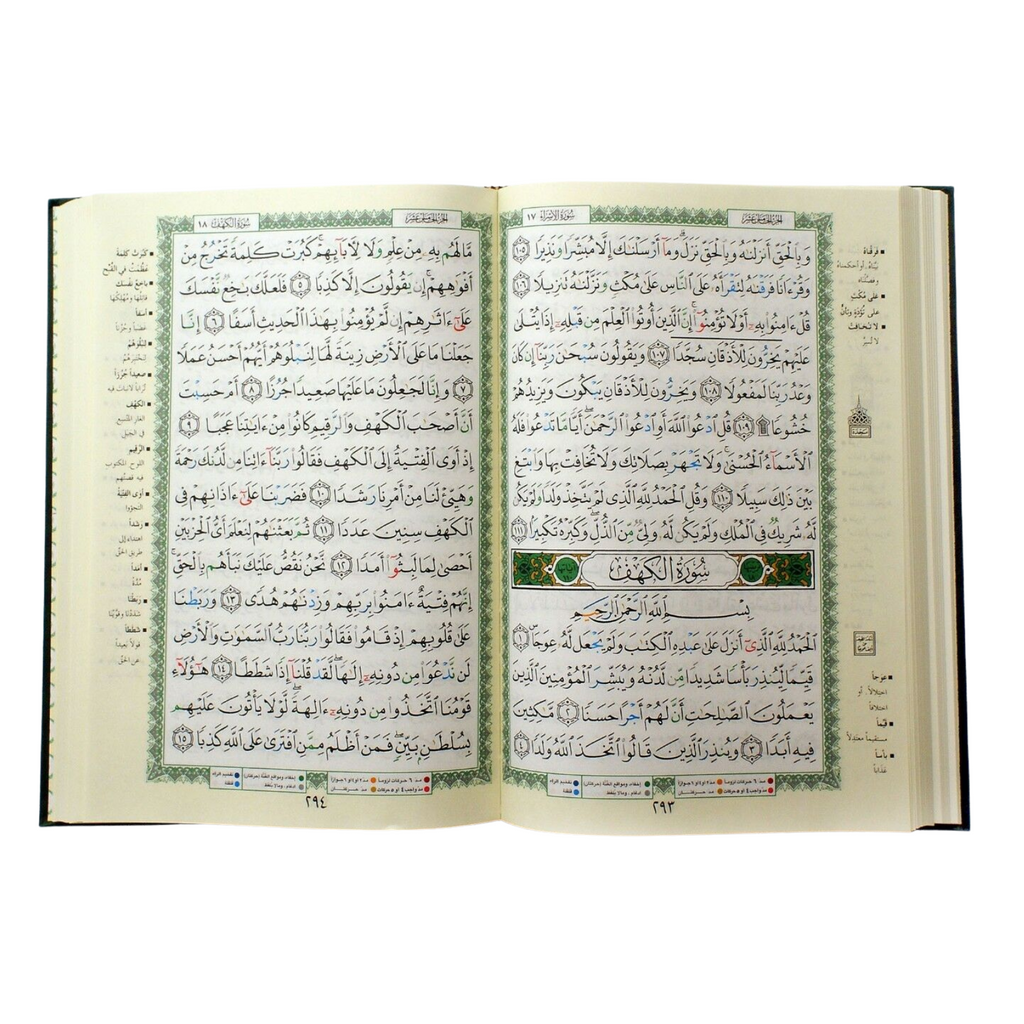 سورة الإسراء ١٧
الجزء الخامس عشر
وَبِالْحَقِّ أَنزَلْنَاهُ وَبِالْحَقِّ نَزَلَ وَمَا أَرْسَلْنَاكَ إِلَّا مُبَشِّرًا وَنَذِيرًا ١٠٥
وَقُرْءَانًا فَرَقْنَاهُ لِتَقْرَأَهُ عَلَى النَّاسِ عَلَىٰ مُكْثٍ وَنَزَّلْنَاهُ تَنزِيلًا ١٠٦
قُلْ ءَامِنُوا بِهِ أَوْ لَا تُؤْمِنُوا إِنَّ الَّذِينَ أُوتُوا الْعِلْمَ مِن قَبْلِهِ إِذَا يُتْلَىٰ
عَلَيْهِمْ يَخِرُّونَ لِلْأَذْقَانِ سُجَّدًا ١٠٧ وَيَقُولُونَ سُبْحَانَ رَبِّنَا إِن كَانَ
وَعْدُ رَبِّنَا لَمَفْعُولًا ١٠٨ وَيَخِرُّونَ لِلْأَذْقَانِ يَبْكُونَ وَيَزِيدُهُمْ
خُشُوعًا ۩ ١٠٩ قُلِ ادْعُوا اللَّهَ أَوِ ادْعُوا الرَّحْمَٰنَ أَيًّا مَا تَدْعُوا فَلَهُ
الْأَسْمَاءُ الْحُسْنَىٰ وَلَا تَجْهَرْ بِصَلَاتِكَ وَلَا تُخَافِتْ بِهَا وَابْتَغِ
بَيْنَ ذَٰلِكَ سَبِيلًا ١١٠ وَقُلِ الْحَمْدُ لِلَّهِ الَّذِي لَمْ يَتَّخِذْ وَلَدًا وَلَمْ يَكُن
لَّهُ شَرِيكٌ فِي الْمُلْكِ وَلَمْ يَكُن لَّهُ وَلِيٌّ مِّنَ الذُّلِّ وَكَبِّرْهُ تَكْبِيرًا ١١١
سُورَةُ الْكَهْفِ
بِسْمِ اللَّهِ الرَّحْمَٰنِ الرَّحِيمِ
الْحَمْدُ لِلَّهِ الَّذِي أَنزَلَ عَلَىٰ عَبْدِهِ الْكِتَابَ وَلَمْ يَجْعَل لَّهُ عِوَجًا ١
قَيِّمًا لِّيُنذِرَ بَأْسًا شَدِيدًا مِّن لَّدُنْهُ وَيُبَشِّرَ الْمُؤْمِنِينَ الَّذِينَ
يَعْمَلُونَ الصَّالِحَاتِ أَنَّ لَهُمْ أَجْرًا حَسَنًا ٢ مَّاكِثِينَ
فِيهِ أَبَدًا ٣ وَيُنذِرَ الَّذِينَ قَالُوا اتَّخَذَ اللَّهُ وَلَدًا ٤
٢٩٣
فرقناه
على مكث
لا تخافت
سجدة
عوجاً
قيماً
مستقيماً معتدلاً
بأساً
عذاباً
سورة الكهف ١٨
الجزء الخامس عشر
مَّا لَهُم بِهِ مِنْ عِلْمٍ وَلَا لِآبَائِهِمْ كَبُرَتْ كَلِمَةً تَخْرُجُ مِنْ
أَفْوَاهِهِمْ إِن يَقُولُونَ إِلَّا كَذِبًا ٥ فَلَعَلَّكَ بَاخِعٌ نَّفْسَكَ
عَلَىٰ ءَاثَارِهِمْ إِن لَّمْ يُؤْمِنُوا بِهَٰذَا الْحَدِيثِ أَسَفًا ٦ إِنَّا
جَعَلْنَا مَا عَلَى الْأَرْضِ زِينَةً لَّهَا لِنَبْلُوَهُمْ أَيُّهُمْ أَحْسَنُ عَمَلًا
٧ وَإِنَّا لَجَاعِلُونَ مَا عَلَيْهَا صَعِيدًا جُرُزًا ٨ أَمْ حَسِبْتَ
أَنَّ أَصْحَابَ الْكَهْفِ وَالرَّقِيمِ كَانُوا مِنْ ءَايَاتِنَا عَجَبًا ٩
إِذْ أَوَى الْفِتْيَةُ إِلَى الْكَهْفِ فَقَالُوا رَبَّنَا ءَاتِنَا مِن لَّدُنكَ رَحْمَةً
وَهَيِّئْ لَنَا مِنْ أَمْرِنَا رَشَدًا ١٠ فَضَرَبْنَا عَلَىٰ ءَاذَانِهِمْ فِي
الْكَهْفِ سِنِينَ عَدَدًا ١١ ثُمَّ بَعَثْنَاهُمْ لِنَعْلَمَ أَيُّ الْحِزْبَيْنِ
أَحْصَىٰ لِمَا لَبِثُوا أَمَدًا ١٢ نَّحْنُ نَقُصُّ عَلَيْكَ نَبَأَهُم بِالْحَقِّ
إِنَّهُمْ فِتْيَةٌ ءَامَنُوا بِرَبِّهِمْ وَزِدْنَاهُمْ هُدًى ١٣ وَرَبَطْنَا
عَلَىٰ قُلُوبِهِمْ إِذْ قَامُوا فَقَالُوا رَبُّنَا رَبُّ السَّمَاوَاتِ وَالْأَرْضِ
لَن نَّدْعُوَا مِن دُونِهِ إِلَٰهًا لَّقَدْ قُلْنَا إِذًا شَطَطًا ١٤ هَٰؤُلَاءِ
قَوْمُنَا اتَّخَذُوا مِن دُونِهِ ءَالِهَةً لَّوْلَا يَأْتُونَ عَلَيْهِم
بِسُلْطَانٍ بَيِّنٍ فَمَنْ أَظْلَمُ مِمَّنِ افْتَرَىٰ عَلَى اللَّهِ كَذِبًا ١٥
٢٩٤
كبرت كلمة
عظمت في القبح
باخع نفسك
قاتلها ومهلكها
أسفاً
لنبلوهم
لنختبرهم
صعيداً جرزاً
الكهف
في الجبل
الرقيم
اللوح المكتوب
أوى الفتية
رشداً
أمداً
مدة
ربطنا
شططاً